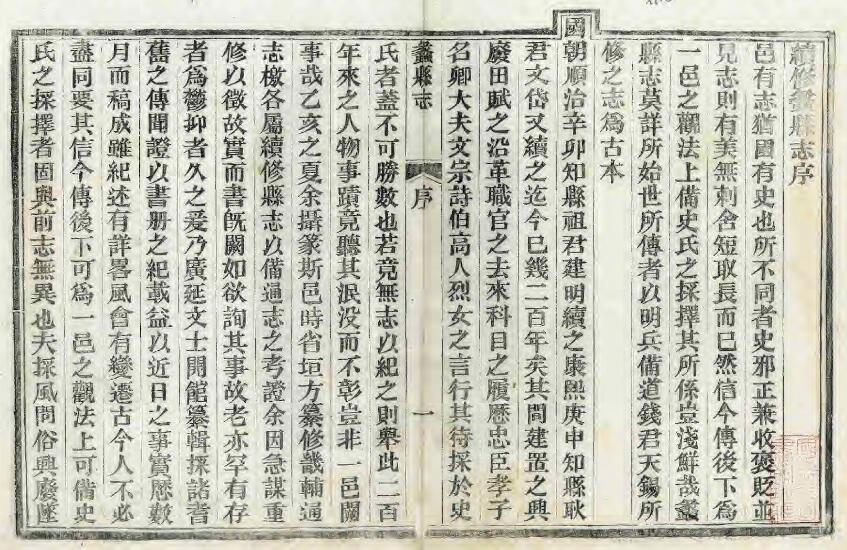 續修蠡縣志序
邑有志猶國有史也所不同者史邪正兼收褒貶並
見志則有美無刺舍短取長而已然信今傳後下爲
一邑之觀法上備史氏之採擇其所係豈淺鮮哉蠡
縣志莫詳所始世所傳者以明兵備道錢君天錫所
修之志爲古本
國朝順治辛卯知縣祖君建明續之康熙庚申知縣耿
君文岱又續之迄今已幾二百年矣其間建置之興
廢田賦之沿革職官之去來科目之履歷忠臣孝子
名卿大夫文宗詩伯高人烈女之言行其待採於史
蠡縣志
序
一
氏者蓋不可勝數也若竟無志以紀之則舉此二百
年來之人物事蹟竟聽其泯没而不彰豈非一邑闕
事哉乙亥之夏余攝篆斯邑時省垣方纂修畿輔通
志檄各屬續修縣志以備通志之考證余因急謀重
修以徵故實而書旣闕如欲詢其事故老亦罕有存
者爲鬱抑者久之爰乃廣延文士開館纂輯採諸耆
舊之傳聞證以書册之紀載益以近日之事實歷數
月而稿成雖紀述有詳畧風會有變遷古今人不必
盡同要其信今傳後下可爲一邑之觀法上可備史
氏之採擇者固與前志無異也夫採風問俗興廢墜